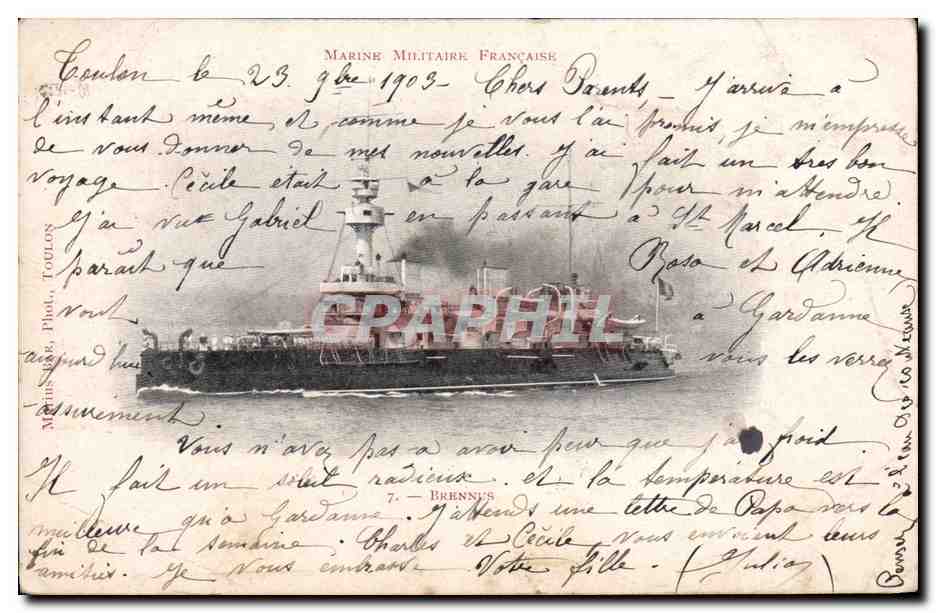 MARINE MILITAIRE FRANÇAISE
Toulon le 23 9bre 1903 - Chers Parents, - J'arrive à
l'instant même, et comme je vous l'ai promis, je m'empresse
de vous donner de mes nouvelles. J'ai fait un tres bon
voyage. Cécile était à la gare pour m'attendre.
J'ai vu Gabriel en passant à St Marcel. Il
paraît que Rosa et Adrienne
vont à Gardanne
aujourd'hui vous les verrez
assurement.
Vous n'avez pas a avoir peur que j'ai froid
Il fait un soleil radieux et la température est
7. — BRENNUS
meilleure qu'a Gardanne. J'attends une lettre de Papa vers la
fin de la semaine. Charles et Cécile, vous envoient leurs
amitiés. Je vous embrasse Votre fille. (Julia)
MARIUS BAR, PHOT., TOULON
CPAPHIL